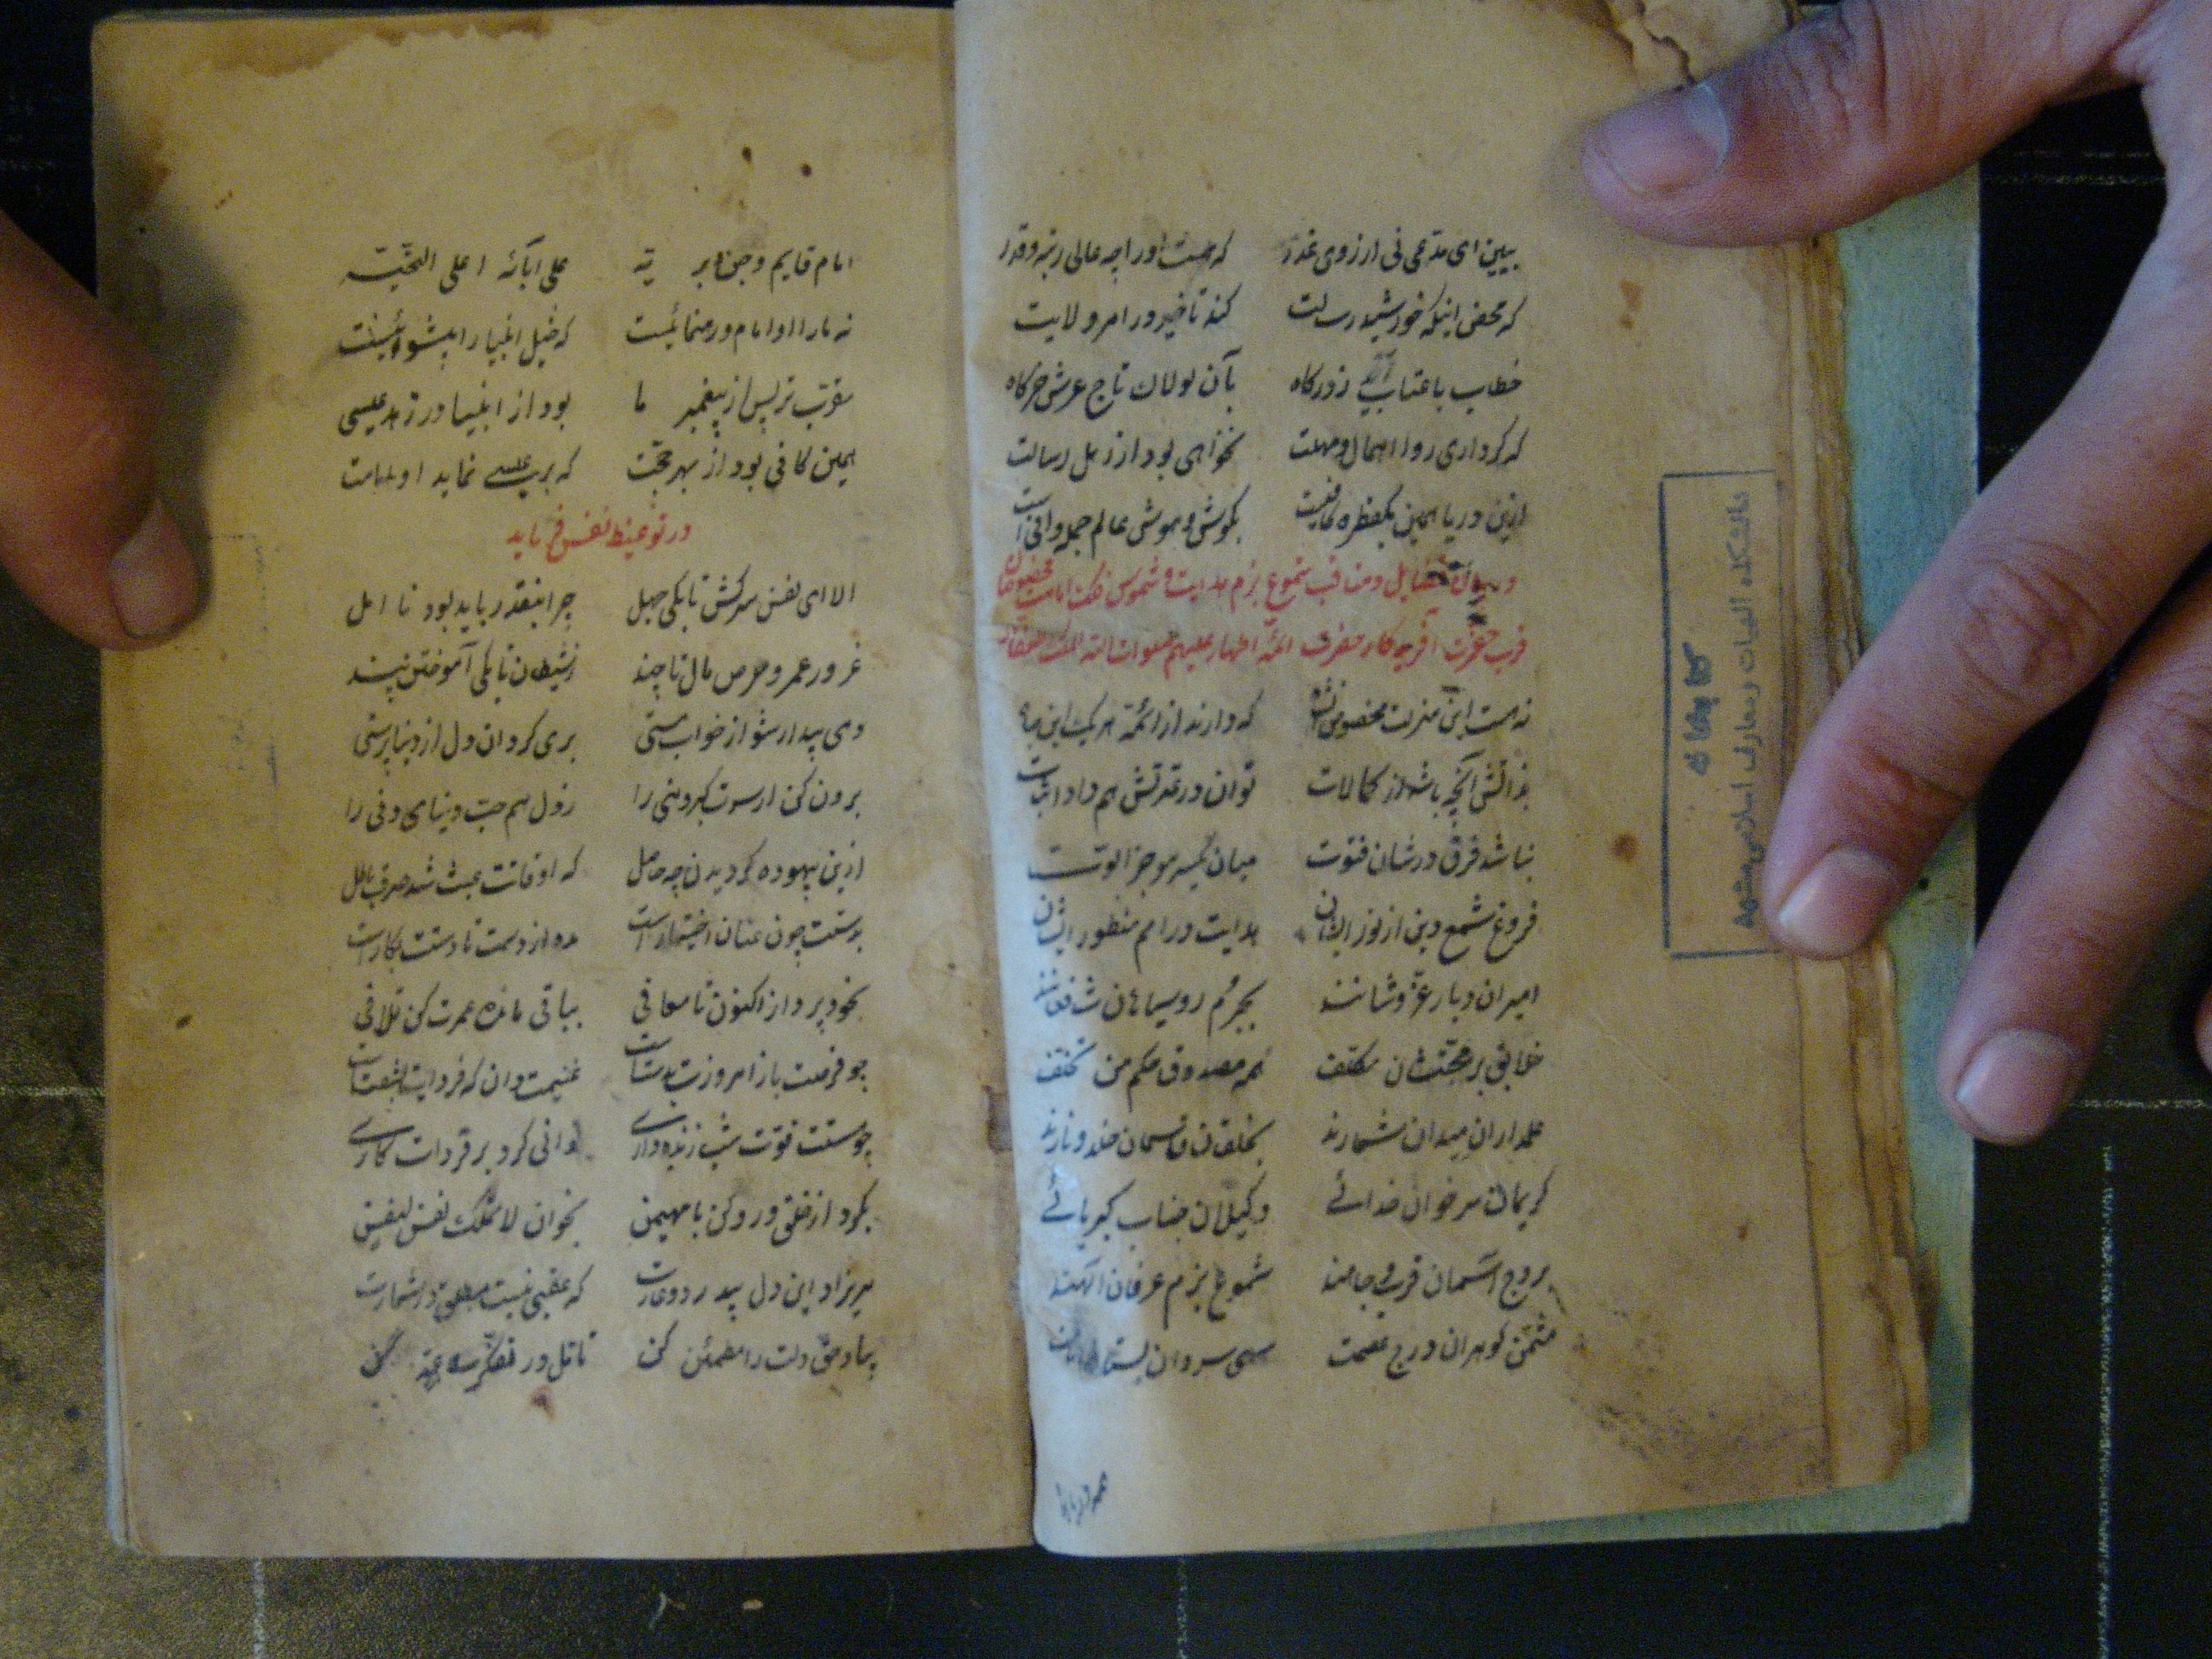 ببین ای مدعی نی از روی غدر که هست او را چه عالی رتبه و قدر
که محض اینکه خورشید رسالت کند تاخیر در امر ولایت
خطاب با عتاب آید ز درگاه بآن لولاک تاج عرش خرگاه
که گر داری روا اهمال و مهلت نخواهی بود از اهل رسالت
ازین دریا همین یکقطره کافیست بگوش و هوش عالم جمله وافی است
در بیان فضایل و مناقب شموع بزم هدایت و شموس فلک امامت مخصوصان
قرب حضرت آفریدکار حضرت ائمه اطهار علیهم صلوات الله الملک الغفار
نه هست این منزلت مخصوص که دارند از ائمه هر یک این جاه
بذاتش آنچه باشد از کمالات توان در قدرتش هم داد اثبات
نباشد فرق در شان فتوت میان
فروغ شمع دین از نور ایشان هدایت در امم منظور ایشان
امیران دیار عز و شانند بجرم روسیاهان شافعانند
خلایق بر محبتشان مکلف همه مصدوق حکم من تخلف
علمداران میدان شمارند بخلقان قاسمان خلد و نارند
کریمان سر خوان خدائے وکیلان جناب کبریائے
بروج آسمان قرب و جاهند شموع بزم عرفان الهند
مثمن گوهران درج عصمت سهی سروان بستان
امام قایم و علی آبائه اعلی التحیه
نه ما را او امام و رهنمائیست که خیل انبیا را پیشوائیست
مقرب تر پس از پیغمبر ما بود از انبیا در زهد عیسی
همین کافی بود از بهر حجت که بر عیسے نماید او امامت
در توعیظ نفس فرماید
الا ای نفس سرکش تا بکی جهل چرا اینقدر باید بود نا اهل
غرور عمر و حرص مال تا چند ز شیطان تا بکی آموختن پند
دمی بیدار شو از خواب مستی بری گردان دل از دنیاپرستی
برون کن از سرت کبر و منی را ز دل هم حب دنیای دنی را
ازین بیهوده گردیدن چه حاصل که اوقاتت عبث شد صرف باطل
بدستت چون عنان اختیار است مده از دست تا دستت بکار است
بخود پرداز اکنون تا معافی بباقی مانده عمرت کن تلافی
چو فرصت باز امروزت بدست است غنیمت دان که فردایت
چو هستت قوت شب زنده داری توانی کرد بر فردات کاری
بگرد از خلق و رو کن با مهیمن بخوان لا تملک نفس لنفس
بریزاد این دل بیدرد و عارت که عقبی نیست مطلق در شمارت
بیاد حق دلت را مطمئن کن تامل در تفکر کن
دانشکده الهیات و معارف اسلامی مشهد
کتابخانه